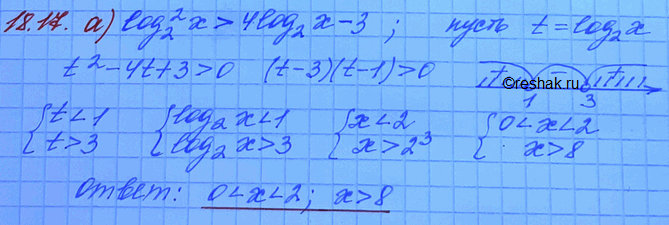 18.17. а) log₂²x > 4log₂x − 3 ; пусть t = log₂x
t² − 4t + 3 > 0 (t − 3)(t − 1) > 0 + − +
©reshak.ru
1 3
{ t < 1 { log₂x < 1 { x < 2 { 0 < x < 2
{ t > 3 { log₂x > 3 { x > 2³ { x > 8
ответ: 0 < x < 2; x > 8